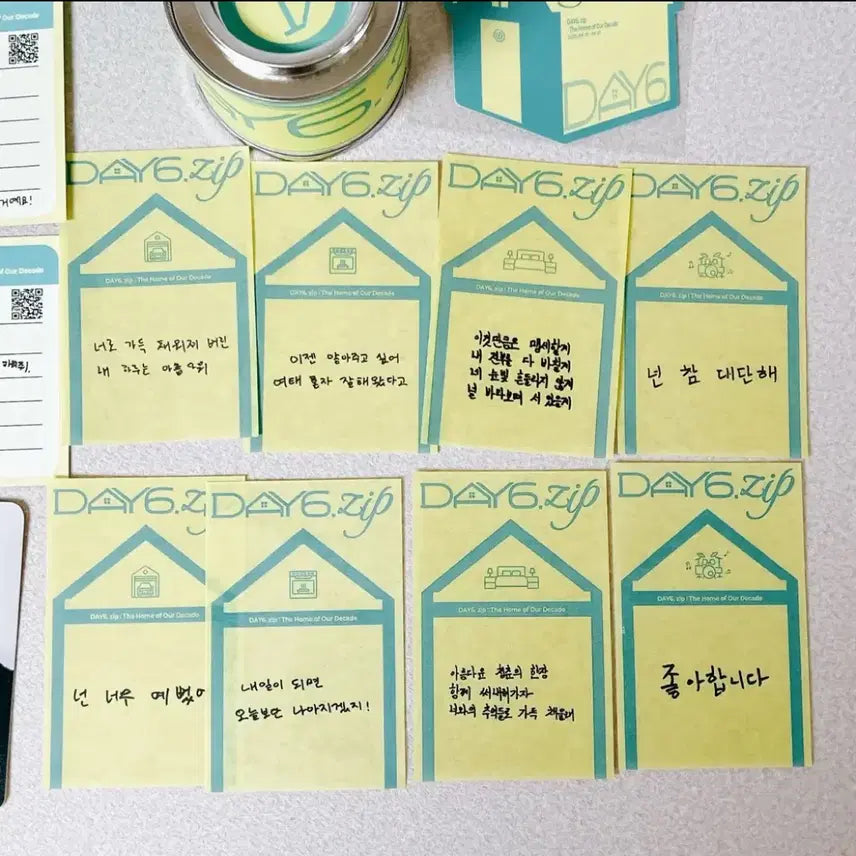 Of Our Decade
거예요!
DAY6.zip
The Home of Our Decade
DAY6
DAY6.zip
DAY6. zip : The Home of Our Decade
너로 가득 채워져 버린
내 하루는 아름다워
DAY6.zip
DAY6. zip : The Home of Our Decade
이젠 말해주고 싶어
여태 혼자 잘해왔다고
DAY6.zip
DAY6. zip : The Home of Our Decade
이것만큼은 맹세할게
내 전부를 다 바칠게
네 눈빛 흔들리지 않게
널 바라보며 서 있을게
DAY6.zip
DAY6. zip : The Home of Our Decade
넌 참 대단해
Of Our Decade
DAY6.zip
DAY6. zip : The Home of Our Decade
넌 너무 예뻤어
DAY6.zip
DAY6. zip : The Home of Our Decade
내일이 되면
오늘보단 나아지겠지!
DAY6.zip
DAY6. zip : The Home of Our Decade
아름다운 청춘의 한장
함께 써내려가자
너와의 추억들로 가득 채울래
DAY6.zip
DAY6. zip : The Home of Our Decade
좋아합니다